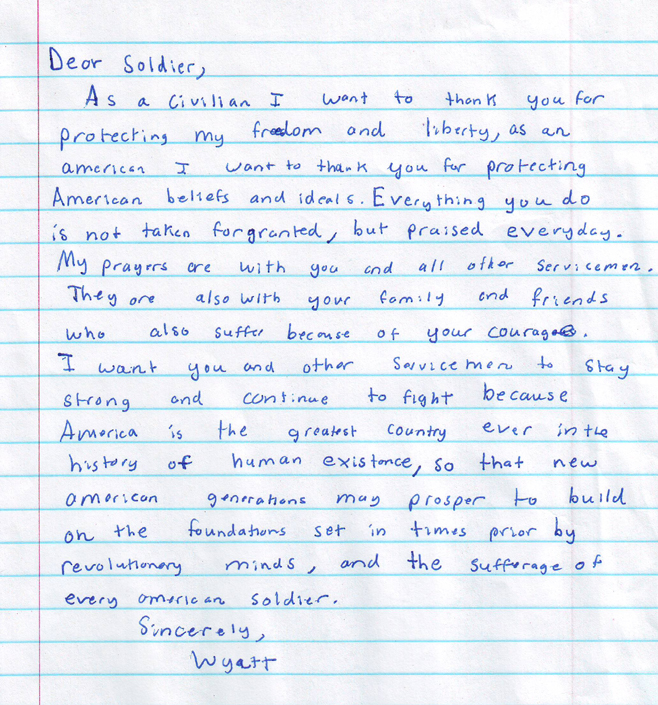 Dear Soldier,
As a Civilian I want to thank you for
protecting my freedom and liberty, as an
american I want to thank you for protecting
American beliefs and ideals. Everything you do
is not taken forgranted, but praised everyday.
My prayers are with you and all other servicemen.
They are also with your family and friends
who also suffer because of your courage.
I want you and other Servicemen to stay
strong and continue to fight because
America is the greatest country ever in the
history of human existance, so that new
american generations may prosper to build
on the foundations set in times prior by
revolutionary minds, and the sufferage of
every american soldier.
Sincerely,
Wyatt